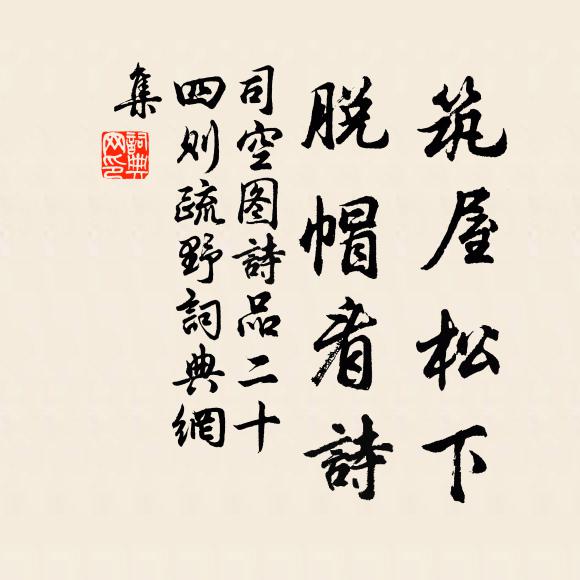 筑屋松下
脱帽看詩
司空图詩品二十
四则疏野詞典網
集
詞典网印